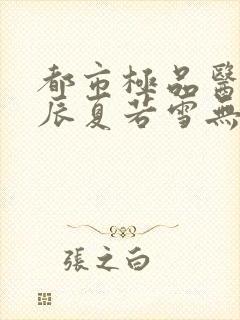 都市極品醫
辰夏若雪無
張之白